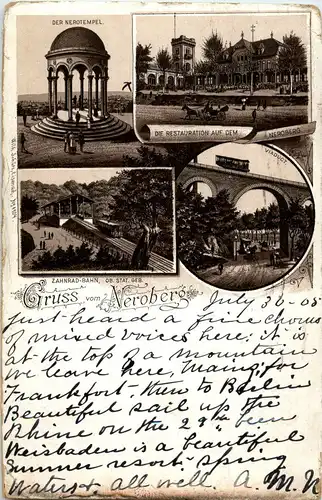 DER NEROTEMPEL.
DIE RESTAURATION AUF DEM
NEROBERG.
VIADUCT.
ZAHNRAD-BAHN, OB. STAT. GEB.
Gruss vom Neroberg
July 30-05
Just heard a fine chorus
of mixed voices here; it is
at the top of a mountain
we leave here, for
Frankfort, then to Berlin
Beautiful sail up the
Rhine on the 29th been
Weisbaden is a beautiful
Summer resort - spring
Waters & all well. A. M. N